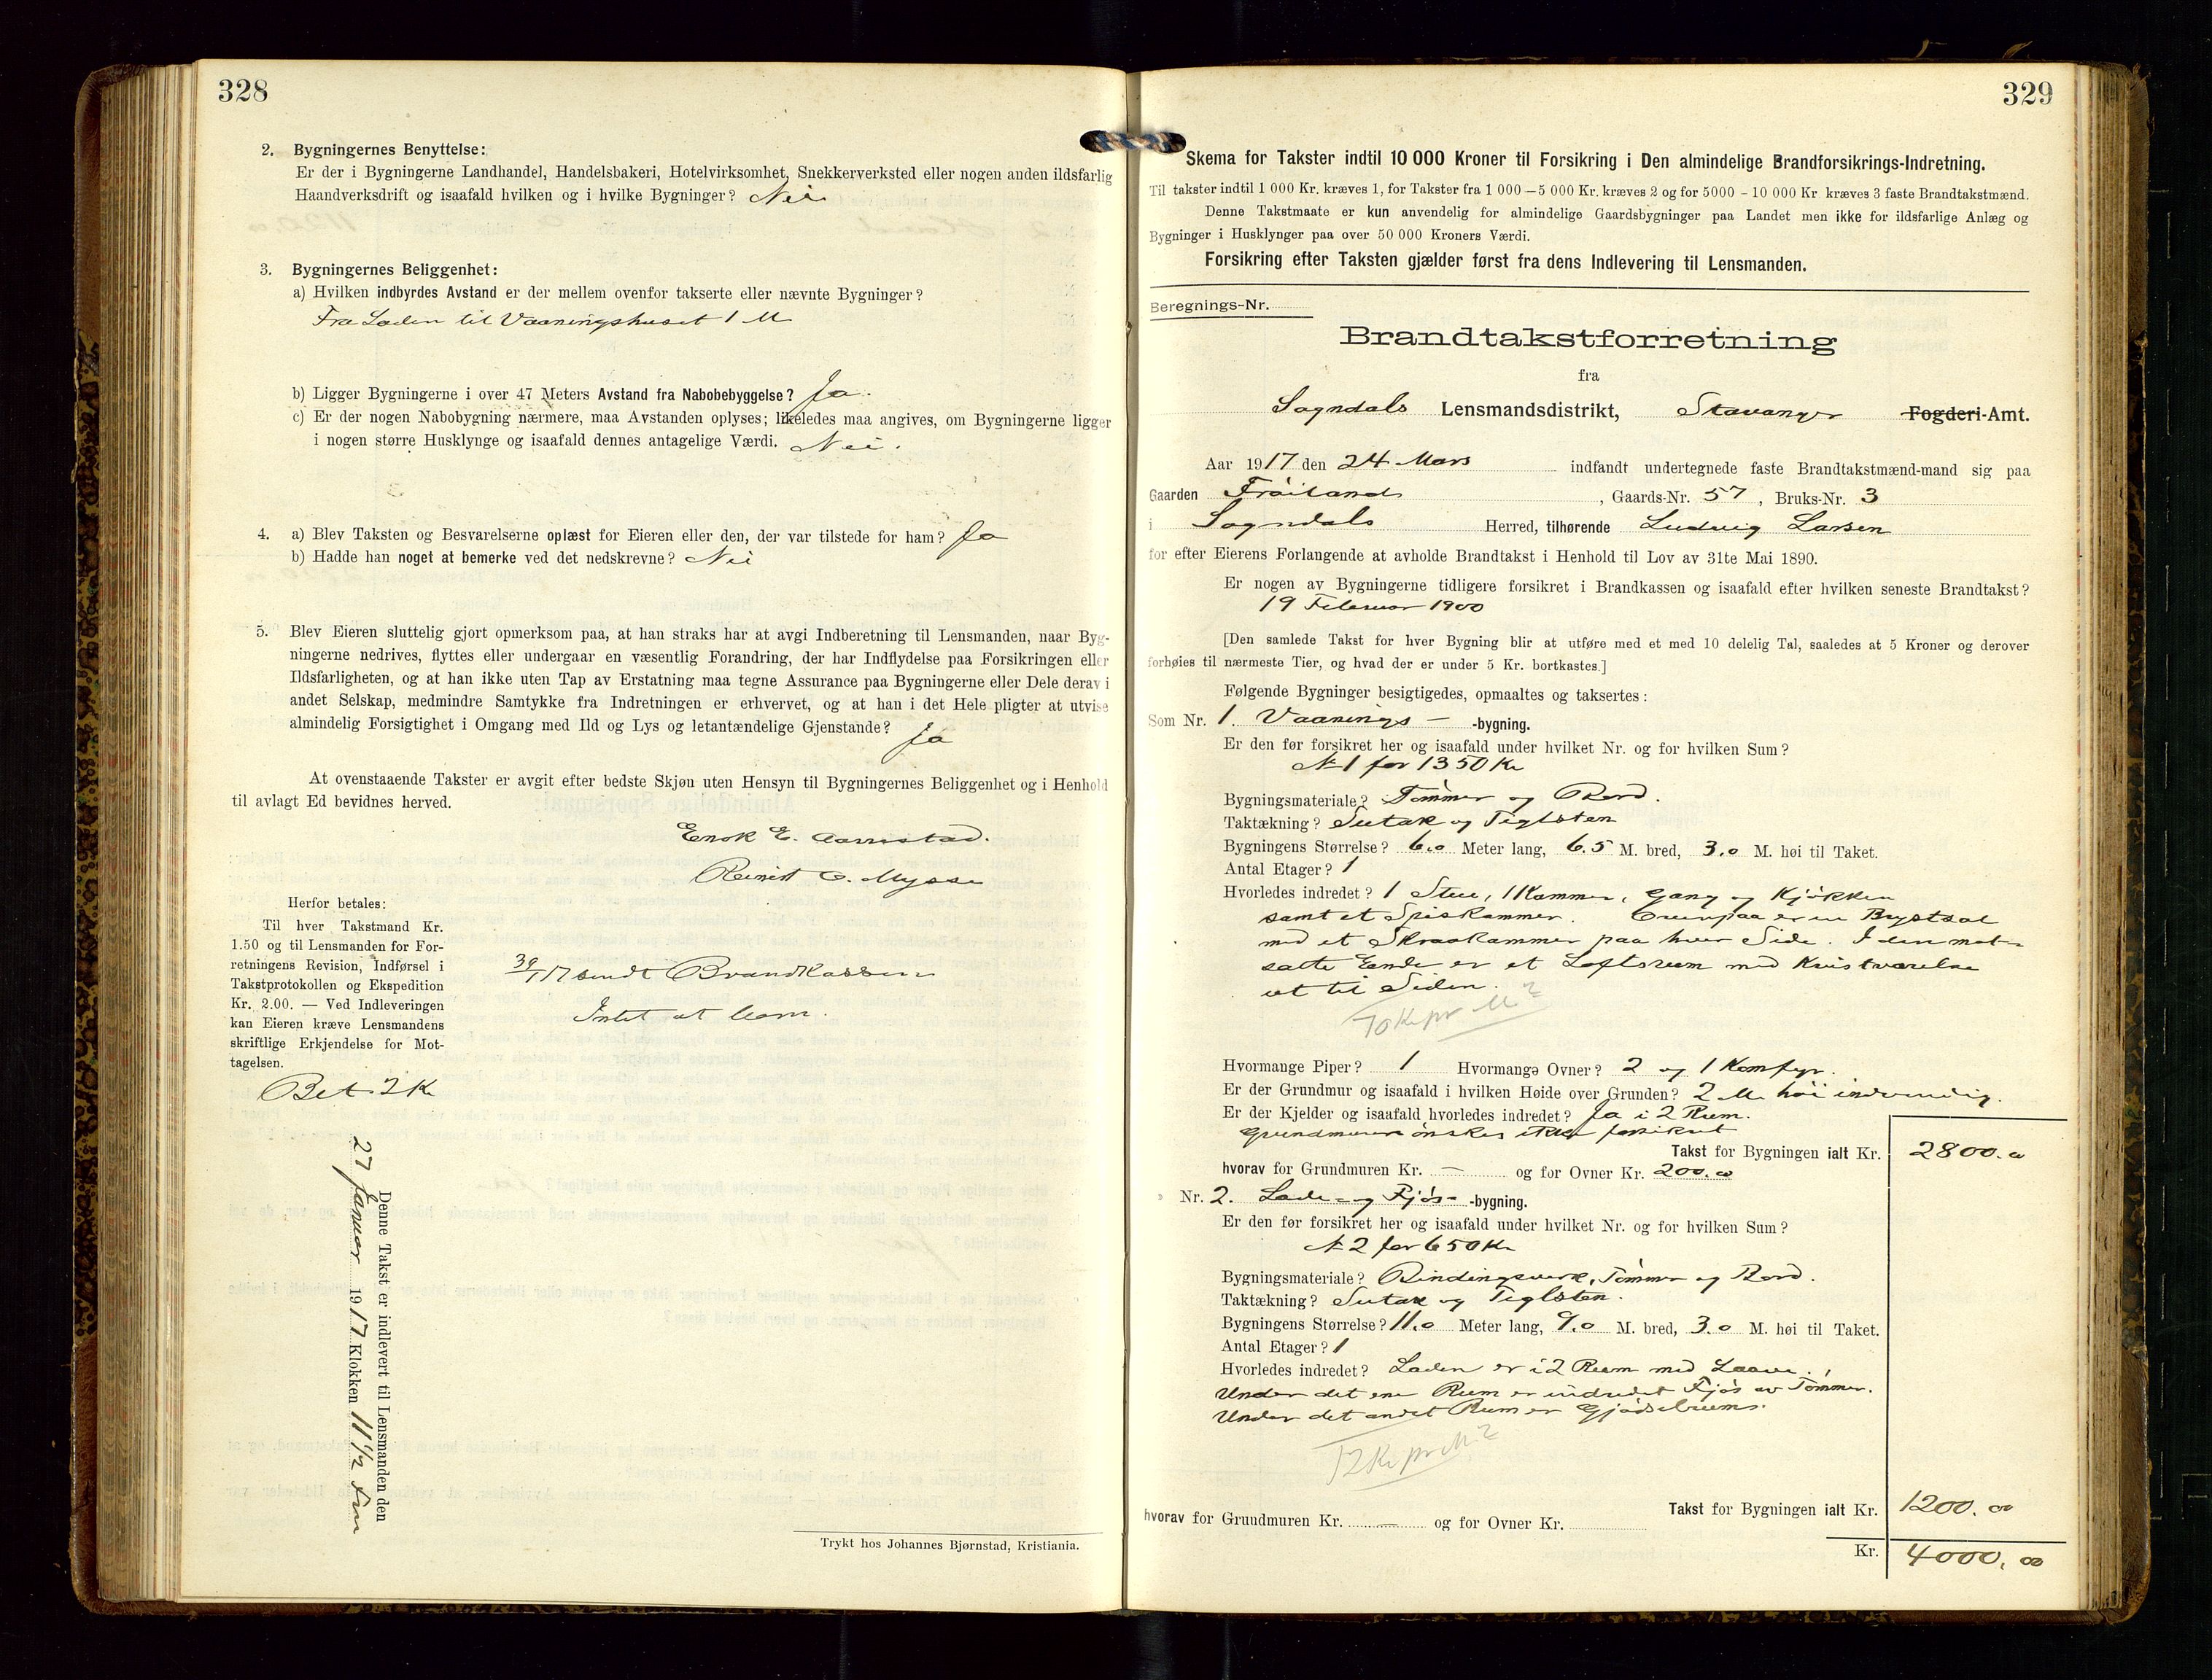 328
2. Bygningernes Benyttelse:
Er der i Bygningerne Landhandel, Handelsbakeri, Hotelvirksomhet, Snekkerverksted eller nogen anden ildsfarlig
Haandverksdrift og isaafald hvilken og i hvilke Bygninger? Nei
3. Bygningernes Beliggenhet:
a) Hvilken indbyrdes Avstand er der mellem ovenfor takserte eller nævnte Bygninger?
Fra Laden til Vaaningshuset 1 M
b) Ligger Bygningerne i over 47 Meters Avstand fra Nabobebyggelse? Ja.
c) Er der nogen Nabobygning nærmere, maa Avstanden oplyses; likeledes maa angives, om Bygningerne ligger
i nogen større Husklynge og isaafald dennes antagelige Værdi. Nei.
4. a) Blev Taksten og Besvarelserne oplæst for Eieren eller den, der var tilstede for ham? Ja
b) Hadde han noget at bemerke ved det nedskrevne? Nei
5. Blev Eieren sluttelig gjort opmerksom paa, at han straks har at avgi Indberetning til Lensmanden, naar Byg-
ningerne nedrives, flyttes eller undergaar en væsentlig Forandring, der har Indflydelse paa Forsikringen eller
Ildsfarligheten, og at han ikke uten Tap av Erstatning maa tegne Assurance paa Bygningerne eller Dele derav i
andet Selskap, medmindre Samtykke fra Indretningen er erhvervet, og at han i det Hele pligter at utvise
almindelig Forsigtighet i Omgang med Ild og Lys og letantændelige Gjenstande? Ja
At ovenstaaende Takster er avgit efter bedste Skjøn uten Hensyn til Bygningernes Beliggenhet og i Henhold
til avlagt Ed bevidnes herved.
Enok E.
Reinert Mysse
Herfor betales:
Til hver Takstmand Kr.
1.50 og til Lensmanden for For-
retningens Revision, Indførsel i
Takstprotokollen og Ekspedition
Kr. 2.00. — Ved Indleveringen
kan Eieren kræve Lensmandens
skriftlige Erkjendelse for Mot-
tagelsen.
Bet. 2 K
17 sendt Brandkassen
Intet at bem.
Denne Takst er indlevert til Lensmanden den
27 Januar 1917 Klokken 11 1/2 Fm
Trykt hos Johannes Bjørnstad, Kristiania.
329
Skema for Takster indtil 10 000 Kroner til Forsikring i Den almindelige Brandforsikrings-Indretning.
Til takster indtil 1 000 Kr. kræves 1, for Takster fra 1 000 — 5 000 Kr. kræves 2 og for 5000 - 10 000 Kr kræves 3 faste Brandtakstmænd.
Denne Takstmaate er kun anvendelig for almindelige Gaardsbygninger paa Landet men ikke for ildsfarlige Anlæg og
Bygninger i Husklynger paa over 50 000 Kroners Værdi.
Forsikring efter Taksten gjælder først fra dens Indlevering til Lensmanden.
Beregnings-Nr.
Brandtakstforretning
fra
Sogndals Lensmandsdistrikt, Stavanger Fogderi-Amt.
Aar 1917 den 24 Mars indfandt undertegnede faste Brandtakstmænd-mand sig paa
Gaarden Frøiland, Gaards-Nr. 57, Bruks-Nr. 3
i Sogndals Herred, tilhørende Ludvig Larsen
for efter Eierens Forlangende at avholde Brandtakst i Henhold til Lov av 31te Mai 1890.
Er nogen av Bygningerne tidligere forsikret i Brandkassen og isaafald efter hvilken seneste Brandtakst?
19 Februar 1900
[Den samlede Takst for hver Bygning blir at utføre med et med 10 delelig Tal, saaledes at 5 Kroner og derover
forhøies til nærmeste Tier, og hvad der er under 5 Kr. bortkastes.]
Følgende Bygninger besigtigedes, opmaaltes og taksertes:
Som Nr. 1. Vaanings - -bygning.
Er den før forsikret her og isaafald under hvilket Nr. og for hvilken Sum?
N 1 for 1350 Kr
Bygningsmateriale? Tømmer og Bord.
Taktækning? Sutak og Teglsten
Bygningens Størrelse? 6.0 Meter lang, 6.5 M. bred, 3.0 M. høi til Taket.
Antal Etager? 1
Hvorledes indredet? 1 Stue, 1 Kammer, Gang og Kjøkken
samt et Spiskammer. Ovenpaa er en Brystsal
med et Skraakammer paa hver Side. I den mot-
satte Ende er et Loftsrum med Kvistværelse
ut til Siden.
70 Kr pr M2
Hvormange Piper? 1 Hvormange Ovner? 2 og 1 Komfyr.
Er der Grundmur og isaafald i hvilken Høide over Grunden? 2 M. høi indvendig.
Er der Kjelder og isaafald hvorledes indredet? Ja i 2 Rum.
Grundmuren ønskes ikke forsikret
Takst for Bygningen ialt Kr. 2800.00
hvorav for Grundmuren Kr. — og for Ovner Kr. 200.00
Nr. 2. Lade- og Fjøs- -bygning.
Er den før forsikret her og isaafald under hvilket Nr. og for hvilken Sum?
N 2 for 650 Kr
Bygningsmateriale? Bindingsverk, Tømmer og Bord.
Taktækning? Sutak og Teglsten.
Bygningens Størrelse? 11.0 Meter lang, 9.0 M. bred, 3.0 M. høi til Taket.
Antal Etager? 1
Hvorledes indredet? Laden er i 2 Rum med Laave.
Under det ene Rum er indredet Fjøs av Tømmer.
Under det andet Rum er Gjødselrum.
12 Kr pr M2
Takst for Bygningen ialt Kr. 1200.00
hvorav for Grundmuren Kr. — og for Ovner Kr.
Kr. 4000.00